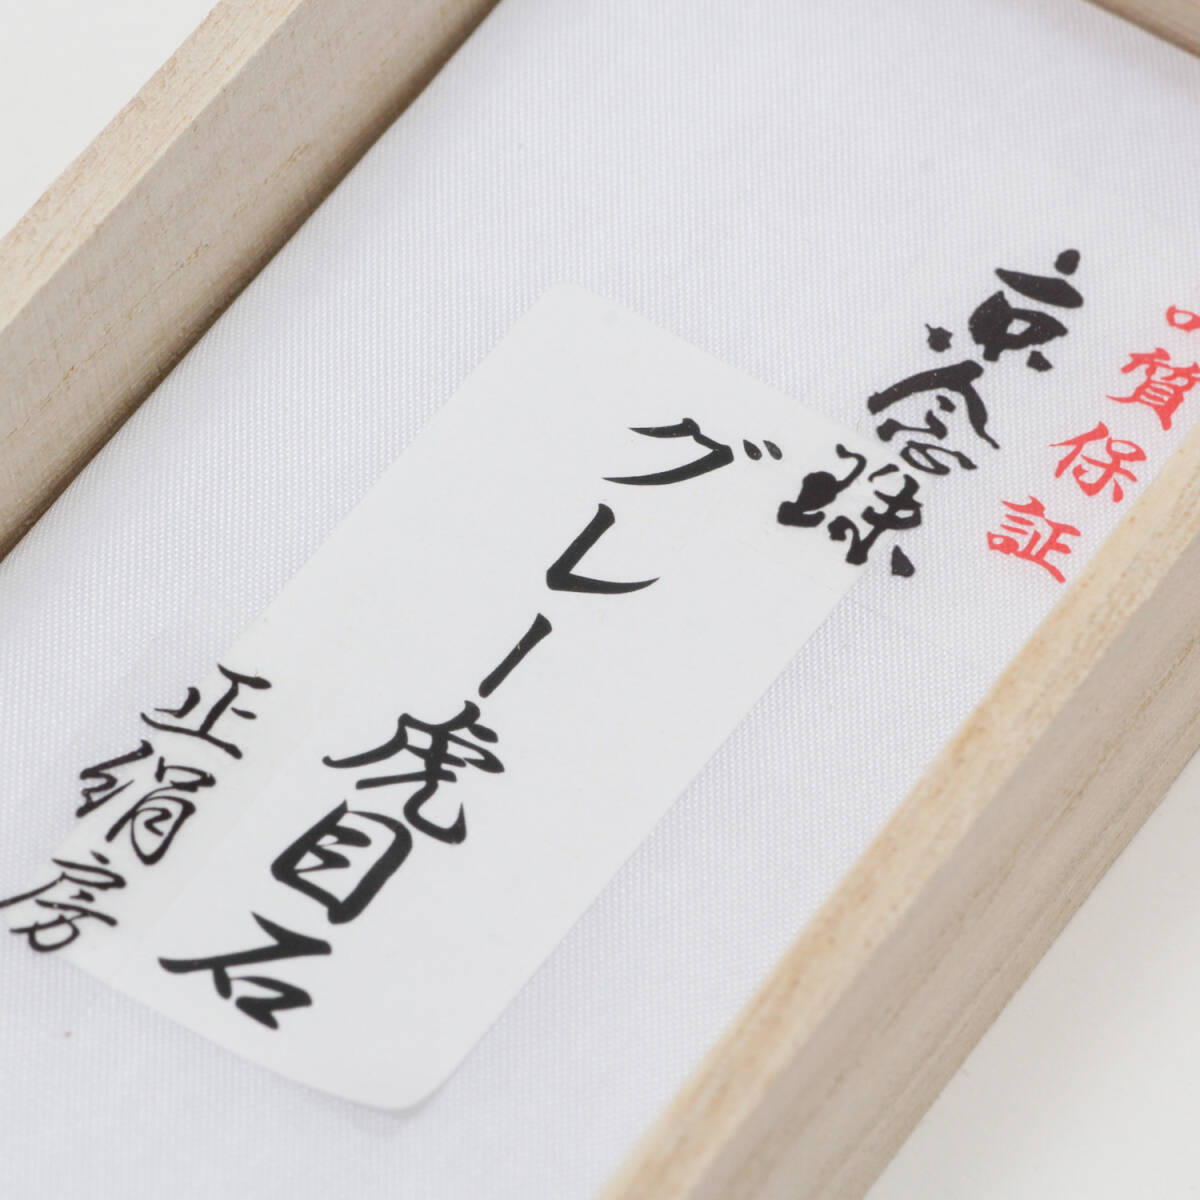 品質保証
京念珠
グレー虎目石
正絹房